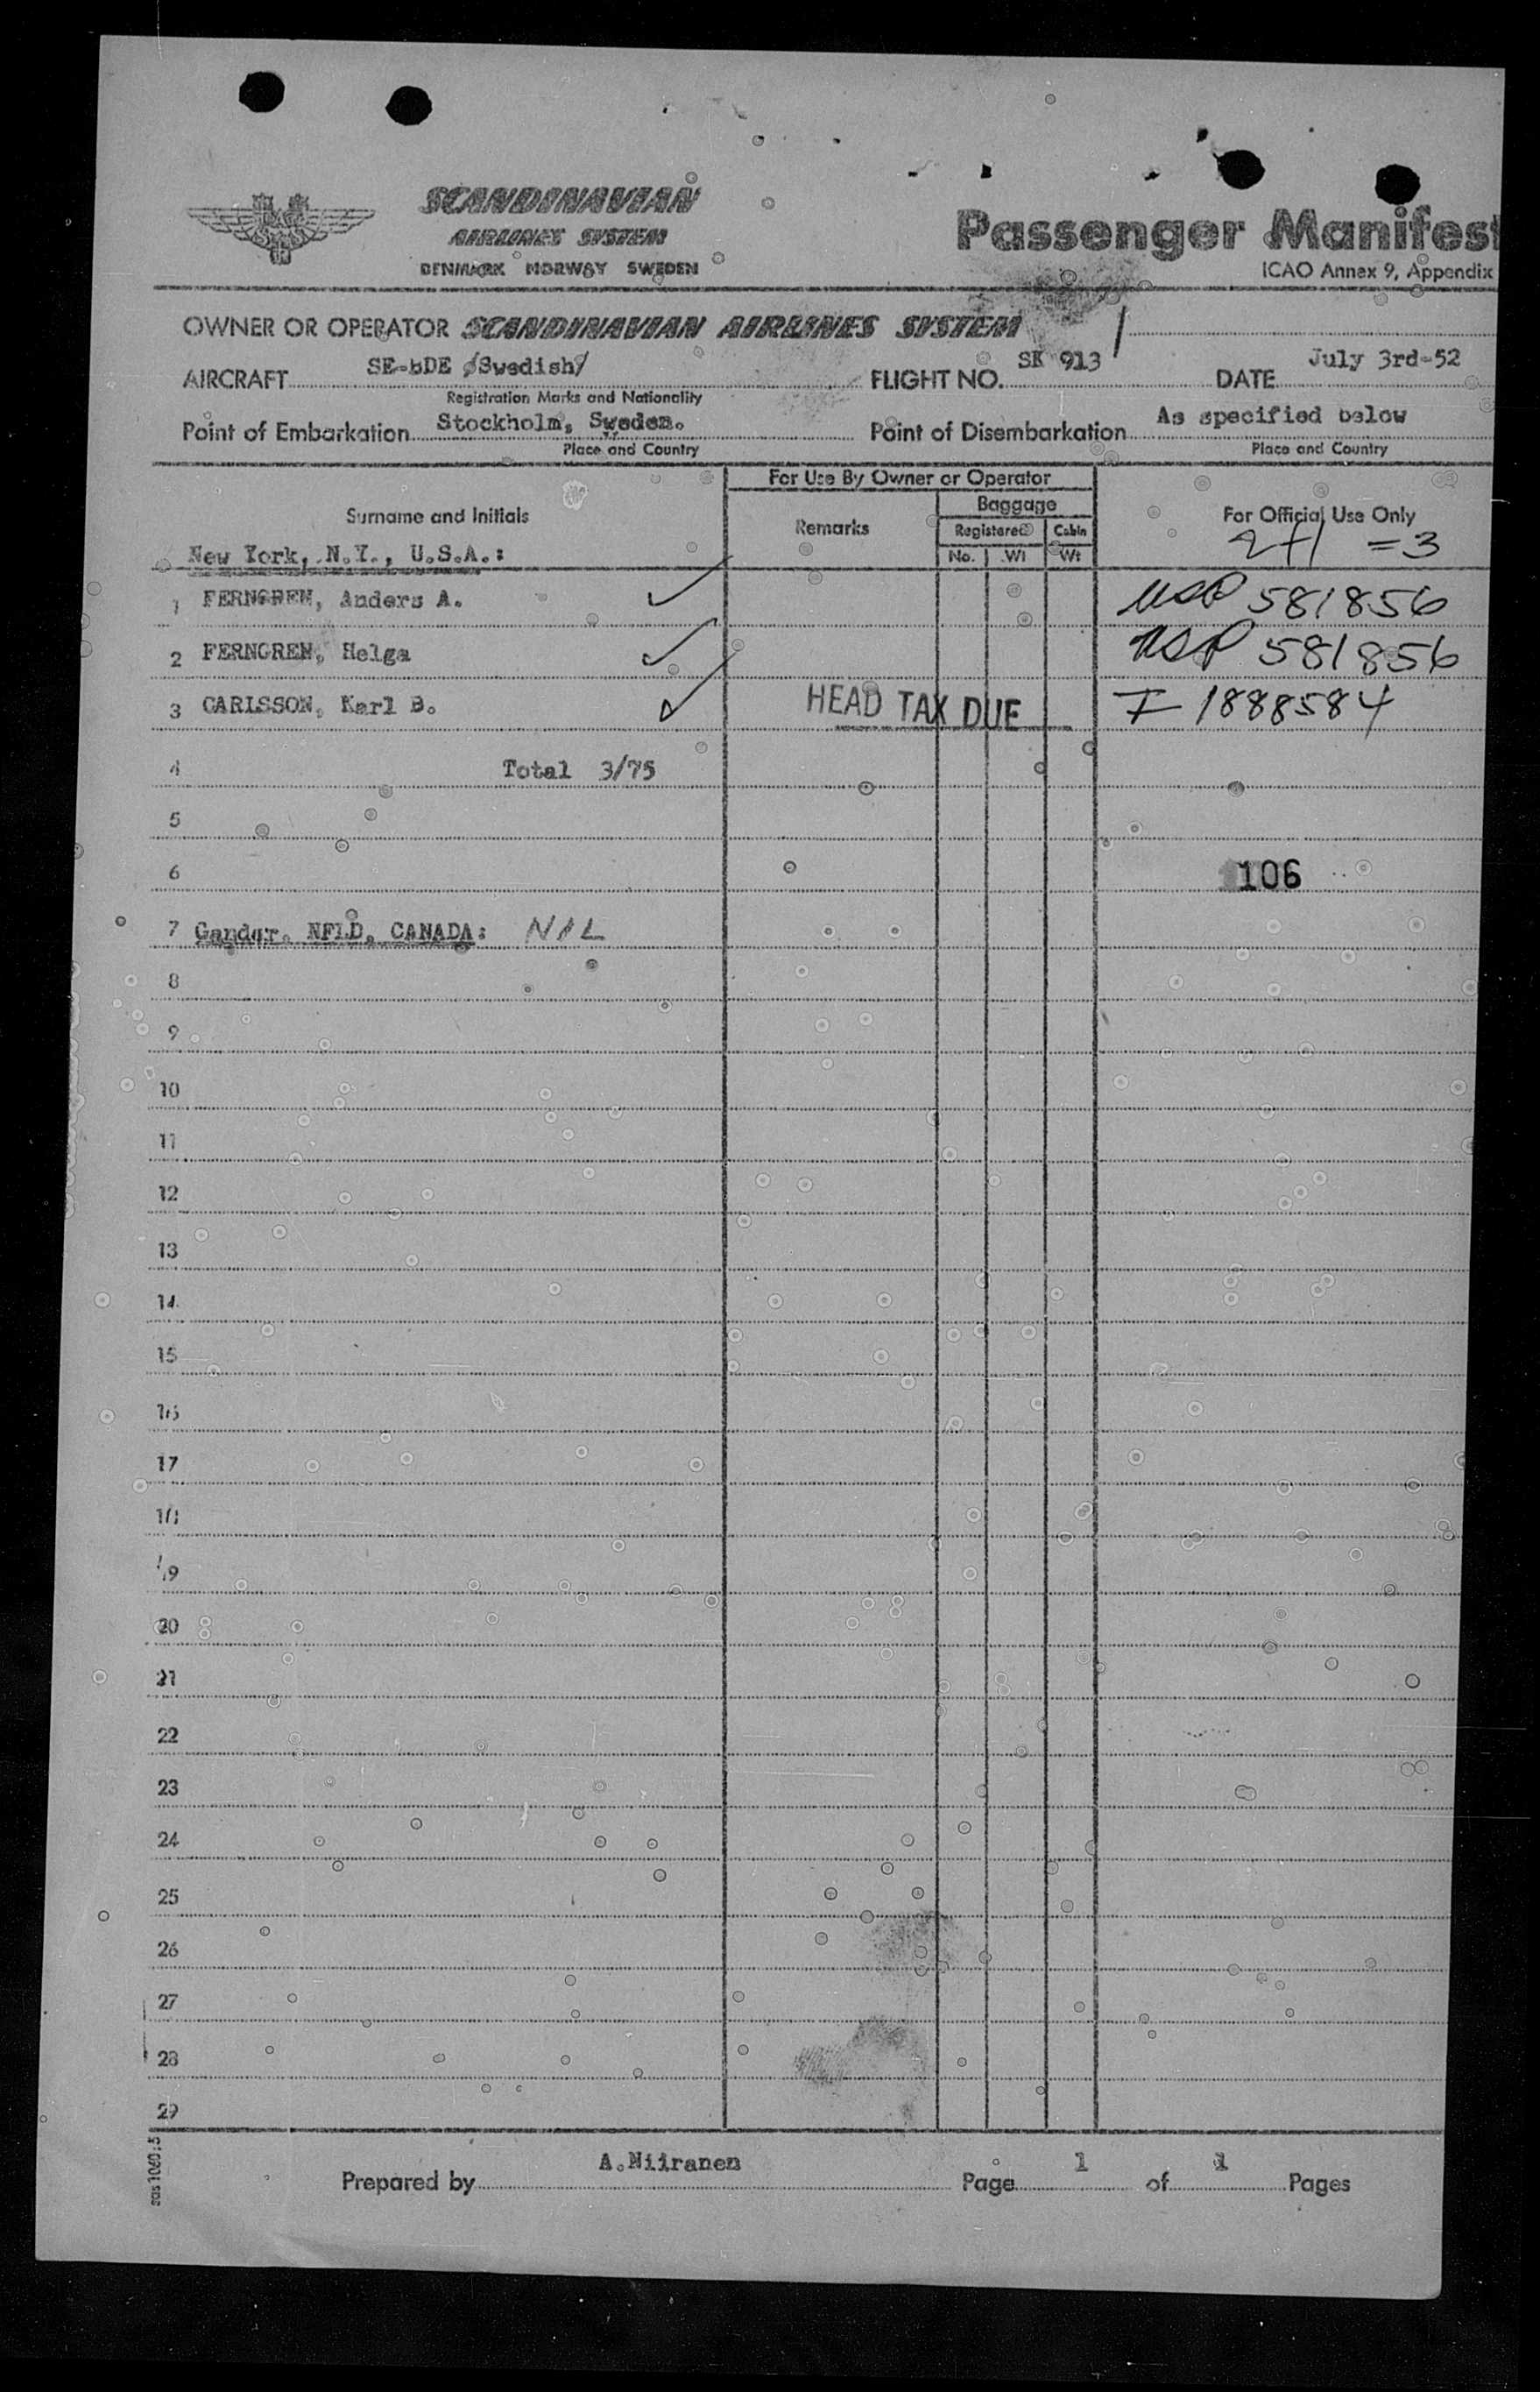 SCANDINAVIAN
AIRLINES SYSTEM
DENMARK NORWAY SWEDEN
Passenger Manifest
ICAO Annex 9, Appendix
OWNER OR OPERATOR SCANDINAVIAN AIRLINES SYSTEM
AIRCRAFT SE-bDE (Swedish) FLIGHT NO. SK 913 DATE July 3rd-52
Registration Marks and Nationality
Point of Embarkation Stockholm, Sweden. Point of Disembarkation As specified below
Place and Country Place and Country
For Use By Owner or Operator
Surname and Initials Remarks Baggage For Official Use Only
Registered Cabin
No. Wt Wt
New York, N.Y., U.S.A.: 2+1 =3
1 FERNGREN, Anders A. USP 581856
2 FERNGREN, Helga USP 581856
3 CARLSSON, Karl B. HEAD TAX DUE I-1888584
4 Total 3/75
5
6 106
7 Gander, NFLD, CANADA: NIL
8
9
10
11
12
13
14
15
16
17
18
19
20
21
22
23
24
25
26
27
28
29
Prepared by A.Niiranen Page 1 of 1 Pages